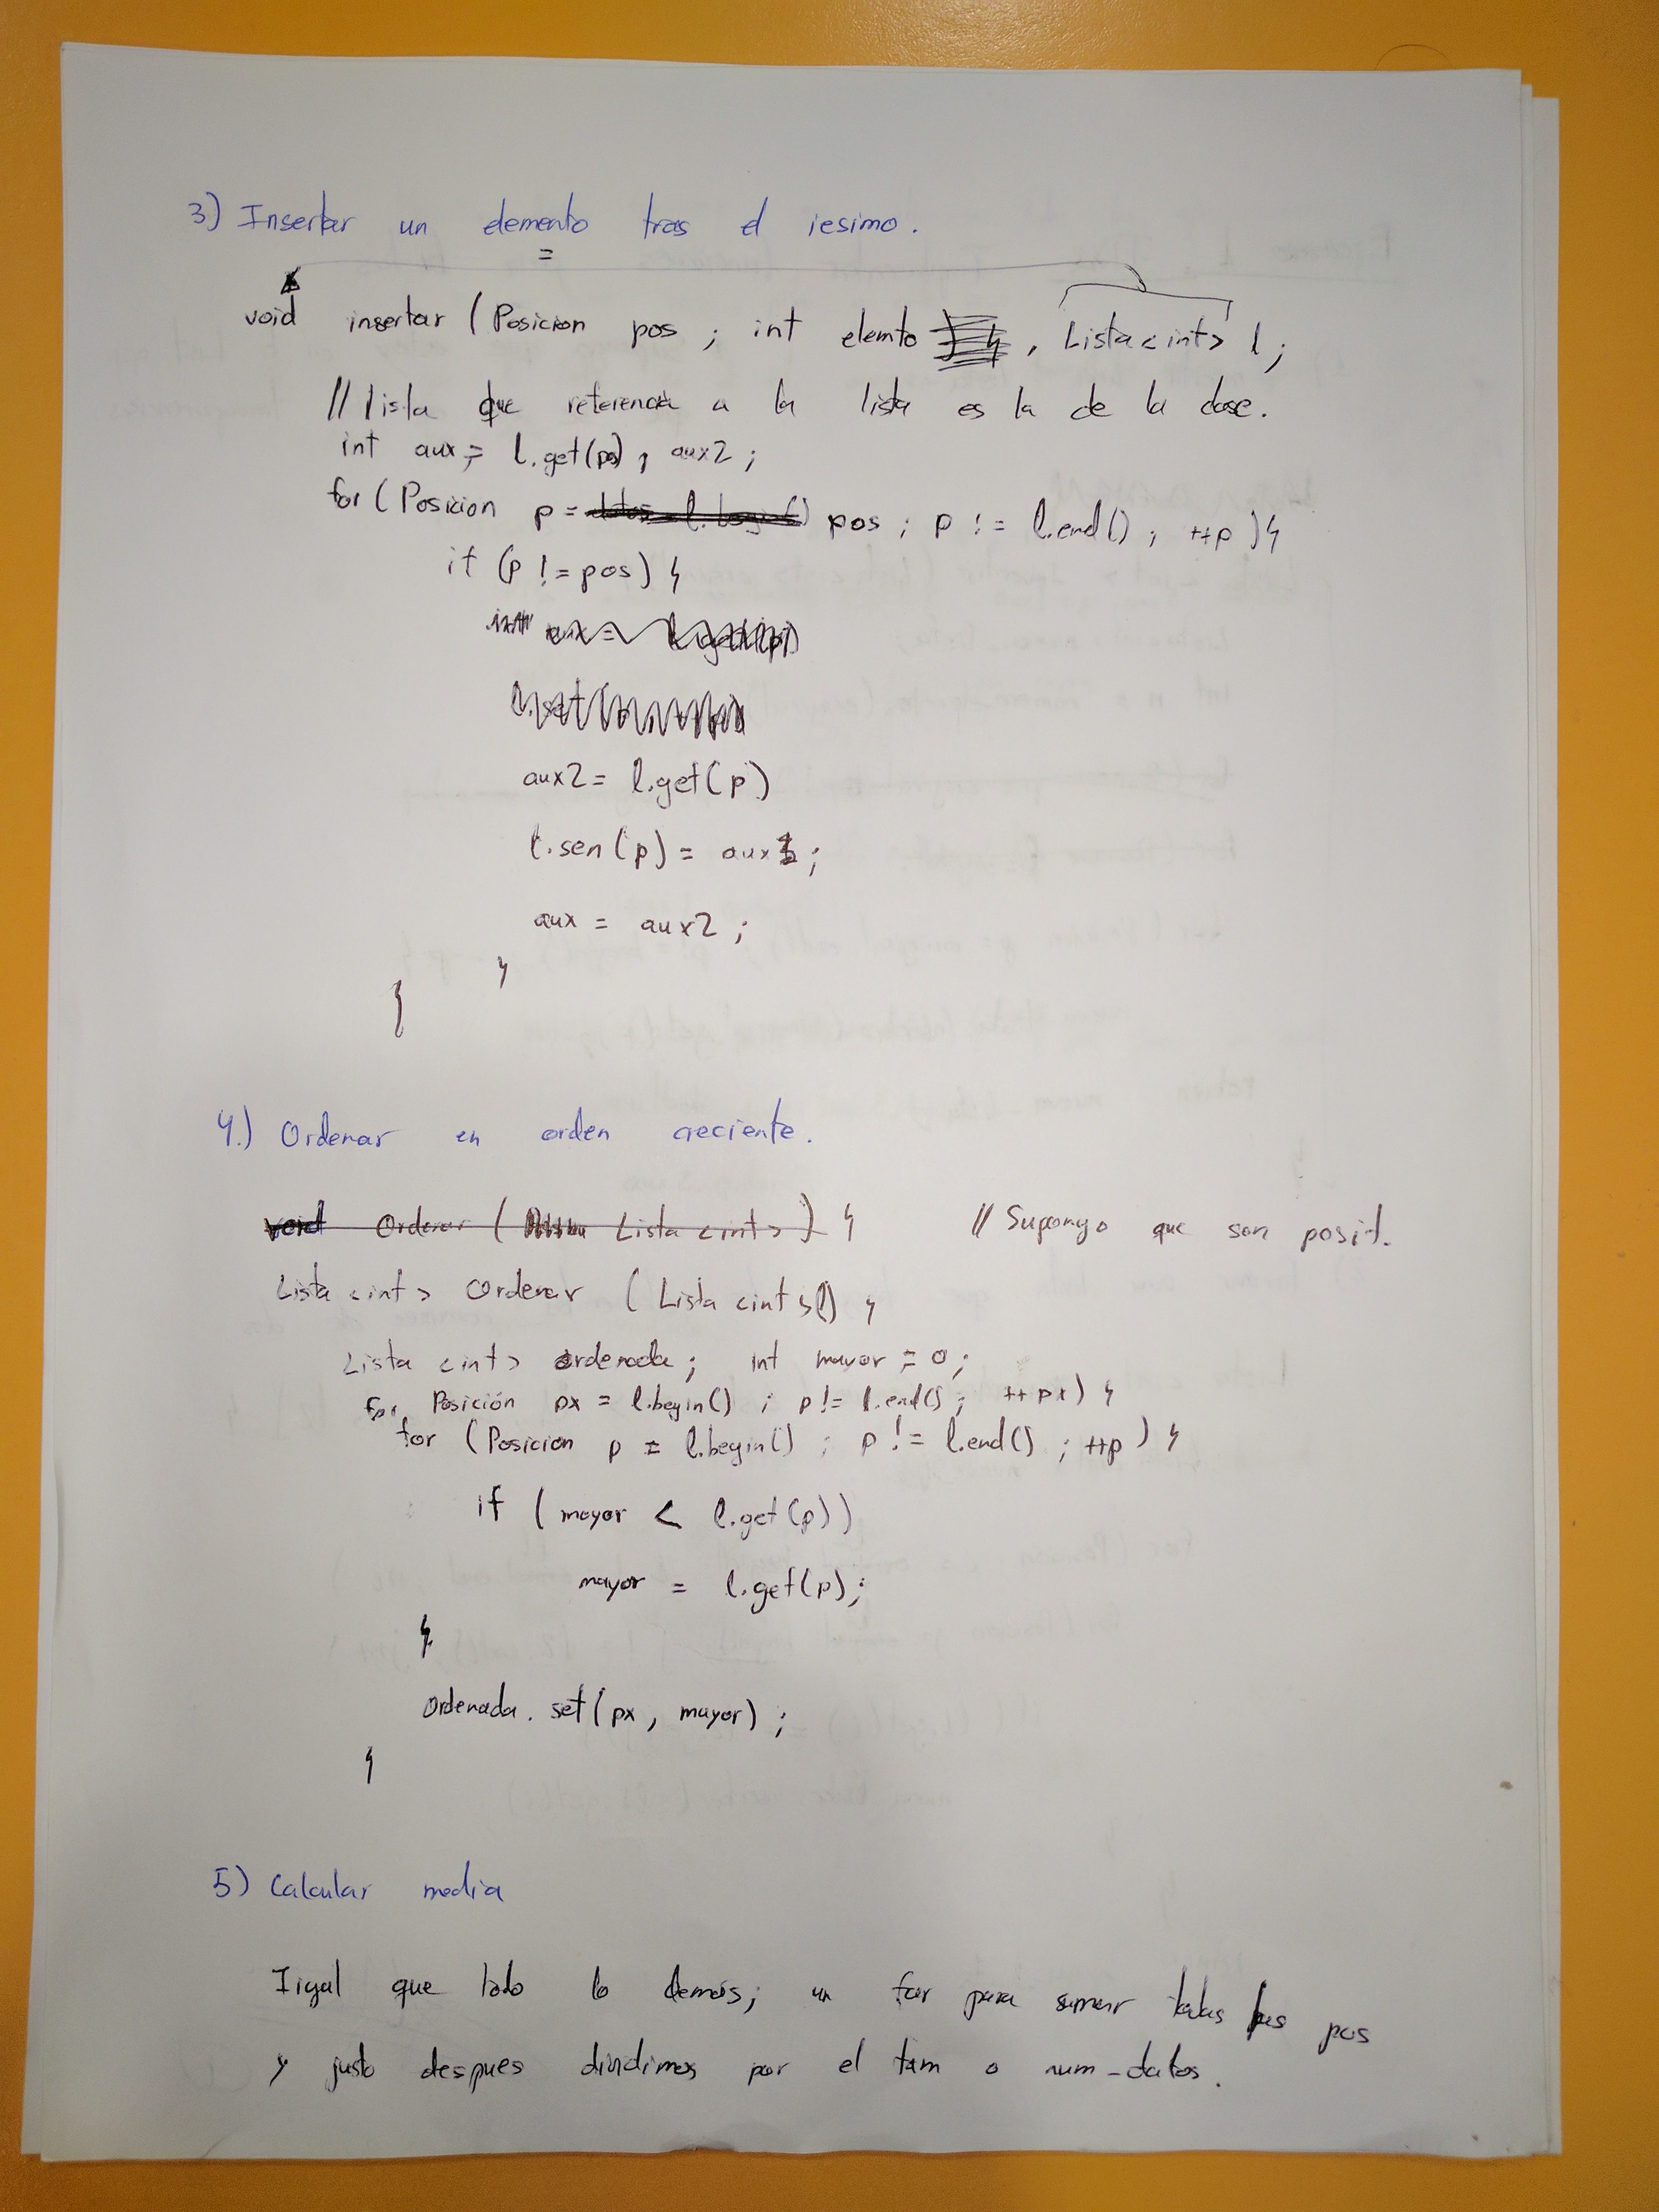 3) Insertar un elemento tras el iesimo.
void insertar (Posicion pos ; int elemto , Lista<int> l ;
// lista que referencia a la lista es la de la clase.
int aux = l.get(pos) , aux2 ;
for ( Posicion p = pos ; p != l.end() ; ++p ) {
if (p != pos) {
aux2 = l.get(p)
l.sen(p) = aux ;
aux = aux2 ;
}
}
4.) Ordenar en orden creciente.
void Ordenar ( Lista<int> ) { // Supongo que son posit.
Lista <int> Ordenar ( Lista <int> l) {
Lista <int> ordenada ; int mayor = 0 ;
for Posición px = l.begin() ; p != l.end() ; ++px ) {
for ( Posicion p = l.begin() ; p != l.end() ; ++p ) {
if ( mayor < l.get(p))
mayor = l.get(p);
}
Ordenada . set(px, mayor) ;
}
5) Calcular media
Iigal que todo lo demás; un for para sumar todas las pos
y justo despues dividimos por el tam o num-datos.